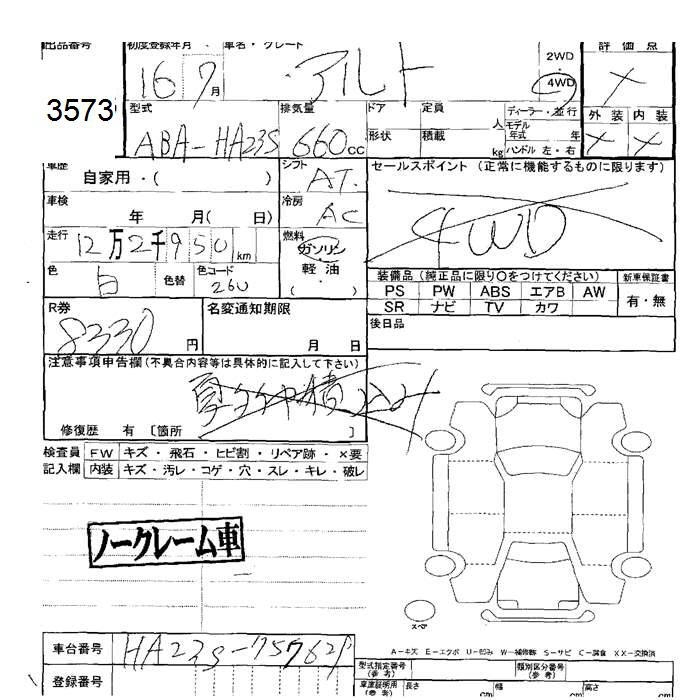 出品番号 初度登録年月 車名・グレード 2WD 4WD 評価点
3573 16 7月 アルト ×
型式 排気量 ドア 定員 ディーラー・並行 外装 内装
ABA-HA23S 660cc 形状 積載 人 kg モデル年式 年 ハンドル 左・右 × ×
車歴 シフト セールスポイント (正常に機能するものに限ります)
自家用・( ) AT
車検 冷房 4WD
年 月( 日) AC
走行 燃料
12万2千950km ガソリン
色 色替 色コード 軽油 装備品 (純正品に限り○をつけてください) 新車保証書
白 260 ( ) PS PW ABS エアB AW 有・無
R券 名変通知期限 SR ナビ TV カワ
8330円 月 日 後日品
注意事項申告欄(不具合内容等は具体的に記入して下さい)
修復歴 有 〔箇所 〕
検査員 FW キズ・飛石・ヒビ割・リペア跡・×要
記入欄 内装 キズ・汚レ・コゲ・穴・スレ・キレ・破レ
ノークレーム車
スペア
A-キズ E-エクボ U-凹み W-補修跡 S-サビ C-腐食 XX-交換済
車台番号 HA23S-
登録番号
型式指定番号(参考) 類別区分番号(参考)
車庫証明用(参考) 長さ cm 幅 cm 高さ cm